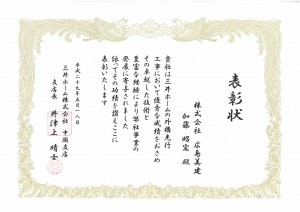 表彰状
株式会社 広島美建
加藤 昭宏 殿
貴社は三井ホームの外構先行
工事において優秀な成績をおさめ
その卓越した技術と
豊富な経験により弊社事業の
発展に寄与されました
依ってその功績を讃えここに
表彰いたします
平成二十九年五月一八日
三井ホーム株式会社 中国支店
支店長 井津上 晴士